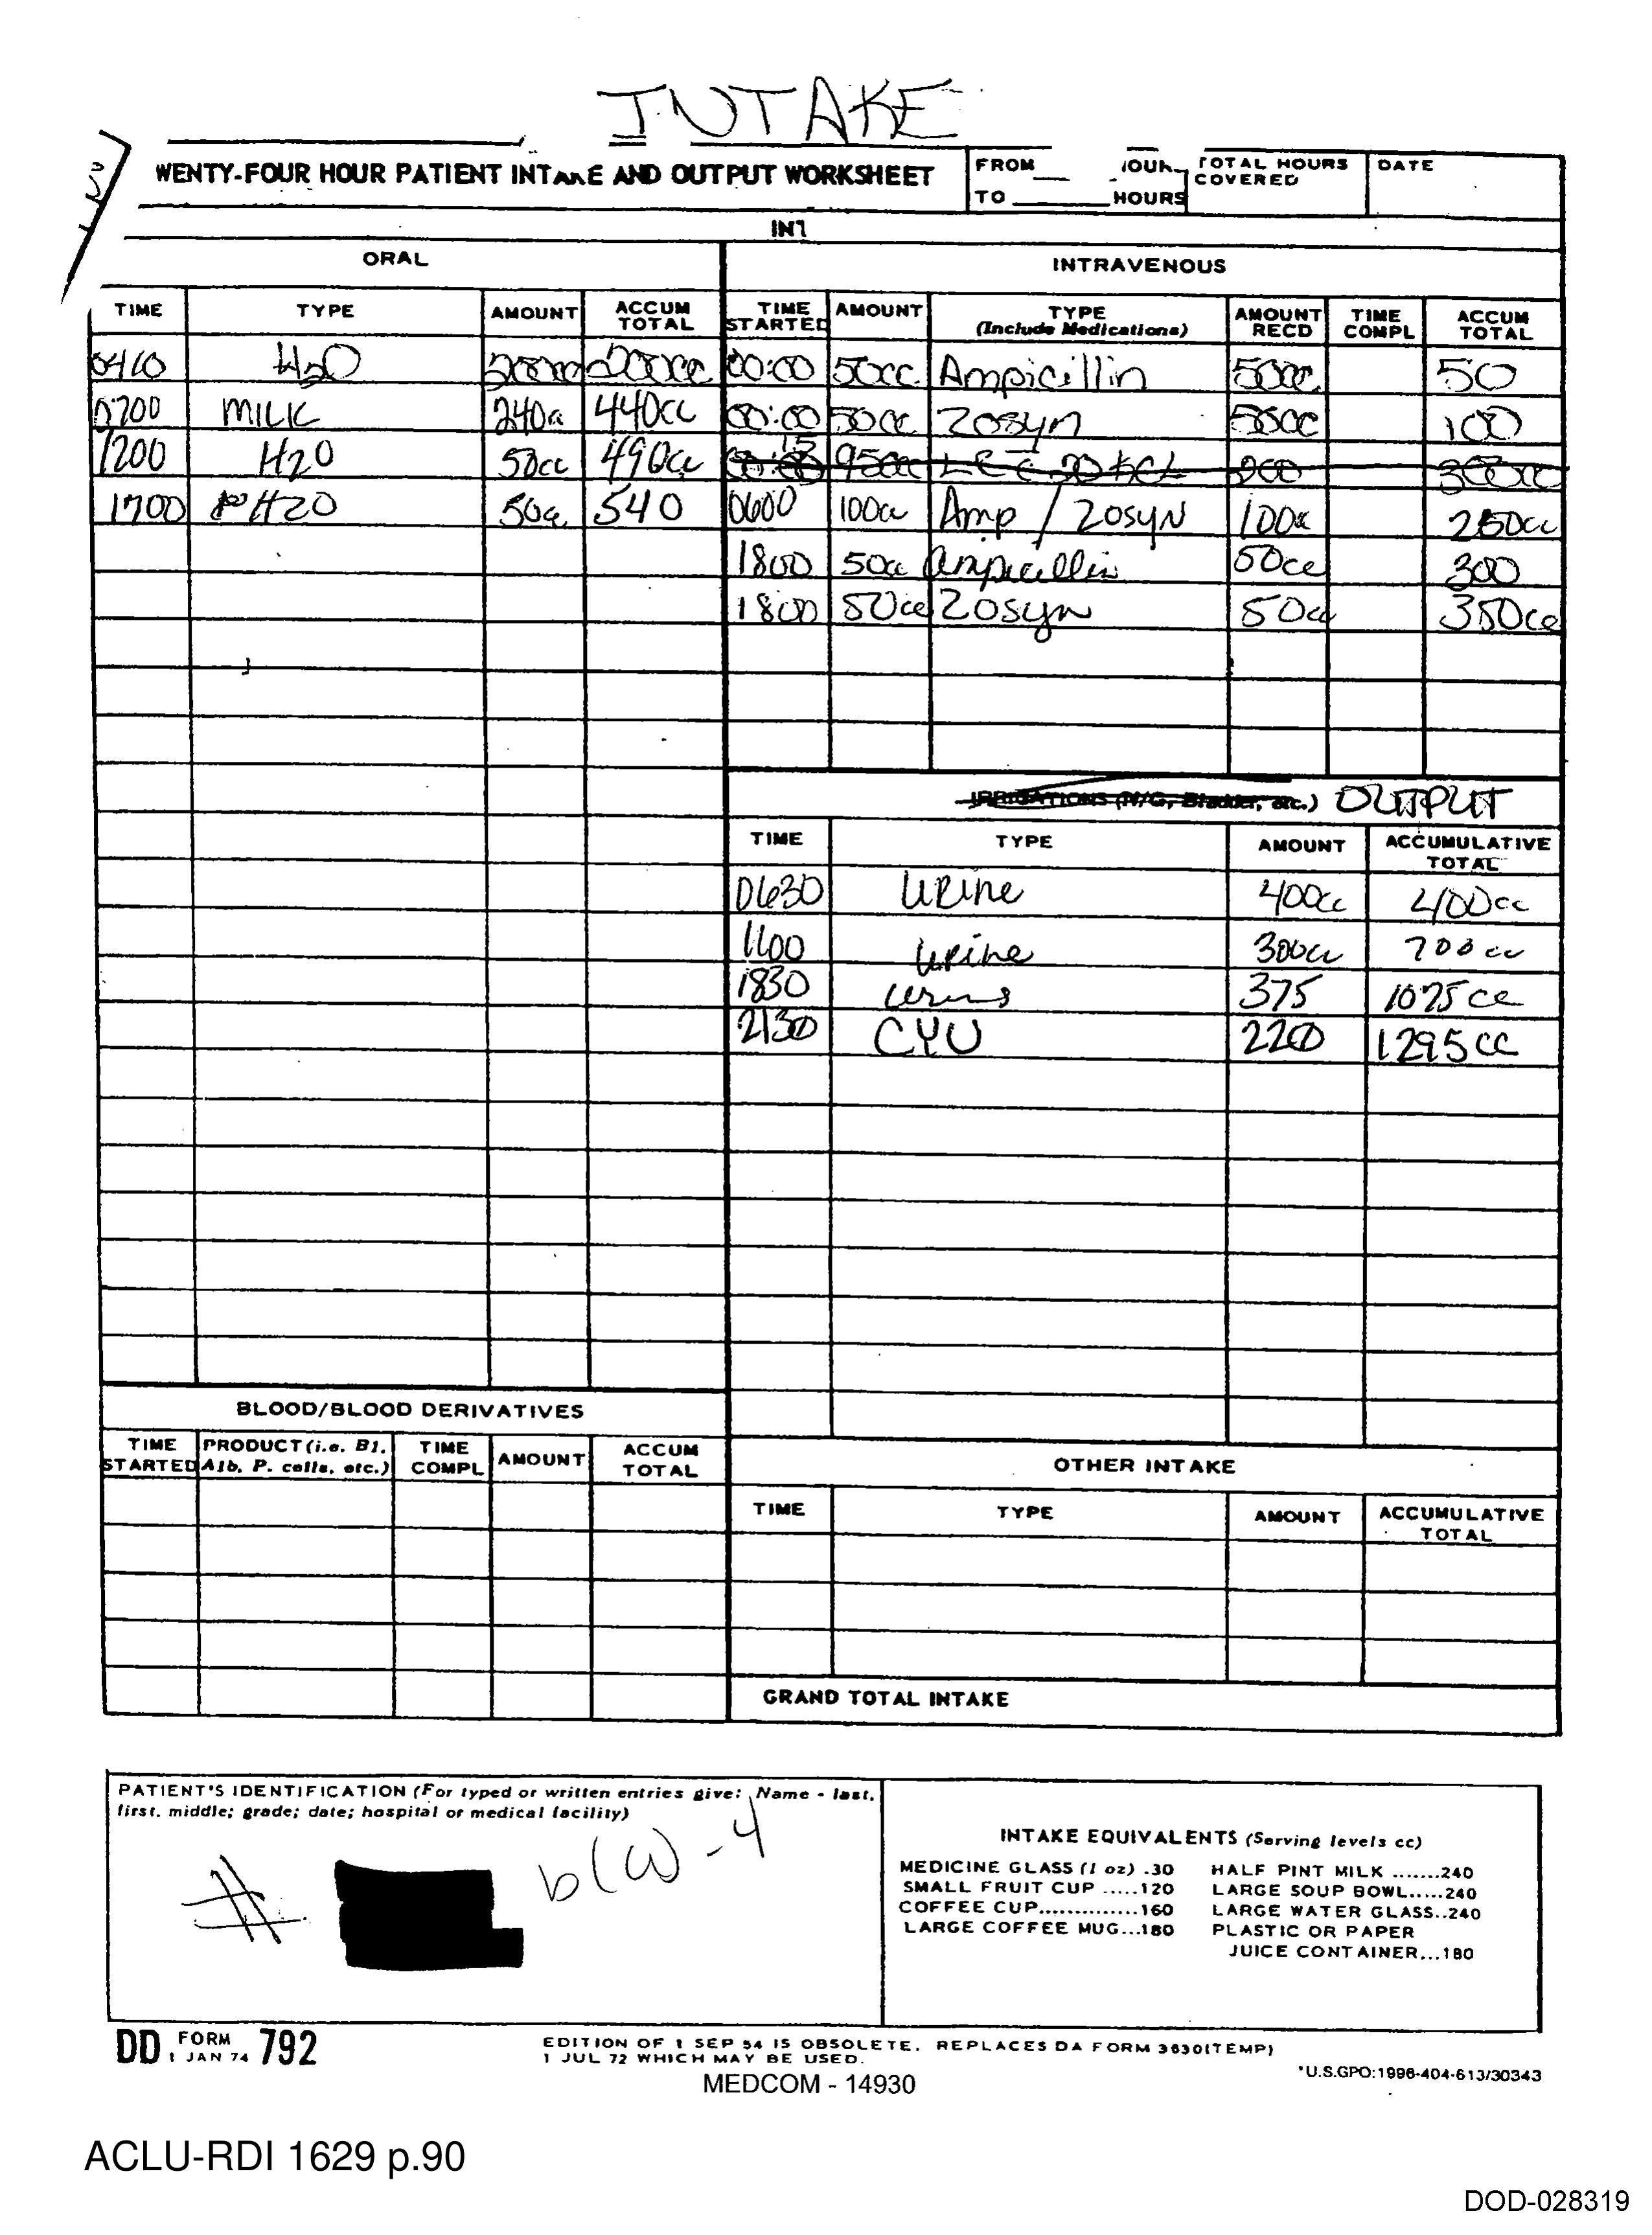 INTAKE
WENTY-FOUR HOUR PATIENT INTAKE AND OUTPUT WORKSHEET
FROM HOUR
TO ______ HOURS
TOTAL HOURS COVERED
DATE
INT
ORAL
TIME TYPE AMOUNT ACCUM TOTAL
H2O 200cc
0700 MILK 240cc 440cc
1200 H2O 50cc 490cc
1700 H2O 50cc 540
INTRAVENOUS
TIME STARTED AMOUNT TYPE (Include Medications) AMOUNT RECD TIME COMPL ACCUM TOTAL
00:00 50cc Ampicillin 50cc 50
00:00 50cc Zosyn 50cc 100
950cc 200
0600 100cc Amp / Zosyn 100cc 250cc
1800 50cc Ampicillin 50cc 300
1800 50cc Zosyn 50cc 350cc
IRRIGATIONS (N/G, Bladder, etc.) OUTPUT
TIME TYPE AMOUNT ACCUMULATIVE TOTAL
0630 URINE 400cc 400cc
1100 Urine 300cc 700cc
1830 375 1075cc
2130 CYU 220 1295cc
BLOOD/BLOOD DERIVATIVES
TIME STARTED PRODUCT (i.e. Bl. Alb, P. cells, etc.) TIME COMPL AMOUNT ACCUM TOTAL
OTHER INTAKE
TIME TYPE AMOUNT ACCUMULATIVE TOTAL
GRAND TOTAL INTAKE
PATIENT'S IDENTIFICATION (For typed or written entries give: Name - last,
first, middle; grade; date; hospital or medical facility)
# b(6)-4
INTAKE EQUIVALENTS (Serving levels cc)
MEDICINE GLASS (1 oz) .30 HALF PINT MILK .......240
SMALL FRUIT CUP .....120 LARGE SOUP BOWL.....240
COFFEE CUP..............160 LARGE WATER GLASS..240
LARGE COFFEE MUG...180 PLASTIC OR PAPER
JUICE CONTAINER...180
DD FORM 1 JAN 74 792
EDITION OF 1 SEP 54 IS OBSOLETE. REPLACES DA FORM 3630(TEMP)
1 JUL 72 WHICH MAY BE USED.
*U.S.GPO:1996-404-613/30343
MEDCOM - 14930
ACLU-RDI 1629 p.90
DOD-028319